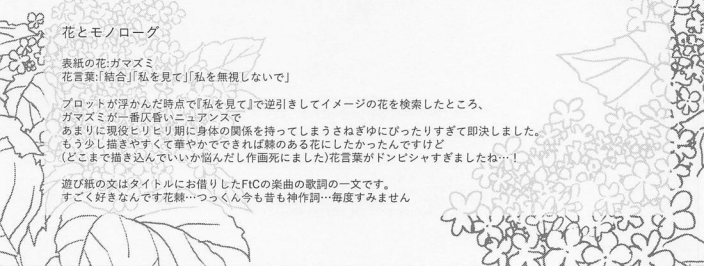 花とモノローグ
表紙の花:ガマズミ
花言葉:｢結合｣｢私を見て｣｢私を無視しないで｣
プロットが浮かんだ時点で『私を見て』で逆引きしてイメージの花を検索したところ、
ガマズミが一番仄昏いニュアンスで
あまりに現役ヒリヒリ期に身体の関係を持ってしまうさねぎゆにぴったりすぎて即決しました。
もう少し描きやすくて華やかでできれば棘のある花にしたかったんですけど
(どこまで描き込んでいいか悩んだし作画死にました)花言葉がドンピシャすぎましたね…！
遊び紙の文はタイトルにお借りしたFtCの楽曲の歌詞の一文です。
すごく好きなんです花棘…つっくん今も昔も神作詞…毎度すみません